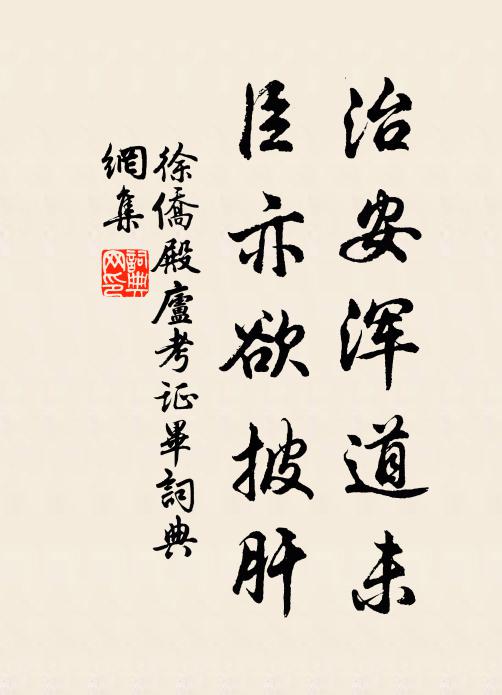 治安浑道未
臣亦欲披肝
徐僑殿廬考证畢詞典
網集
詞典
网印